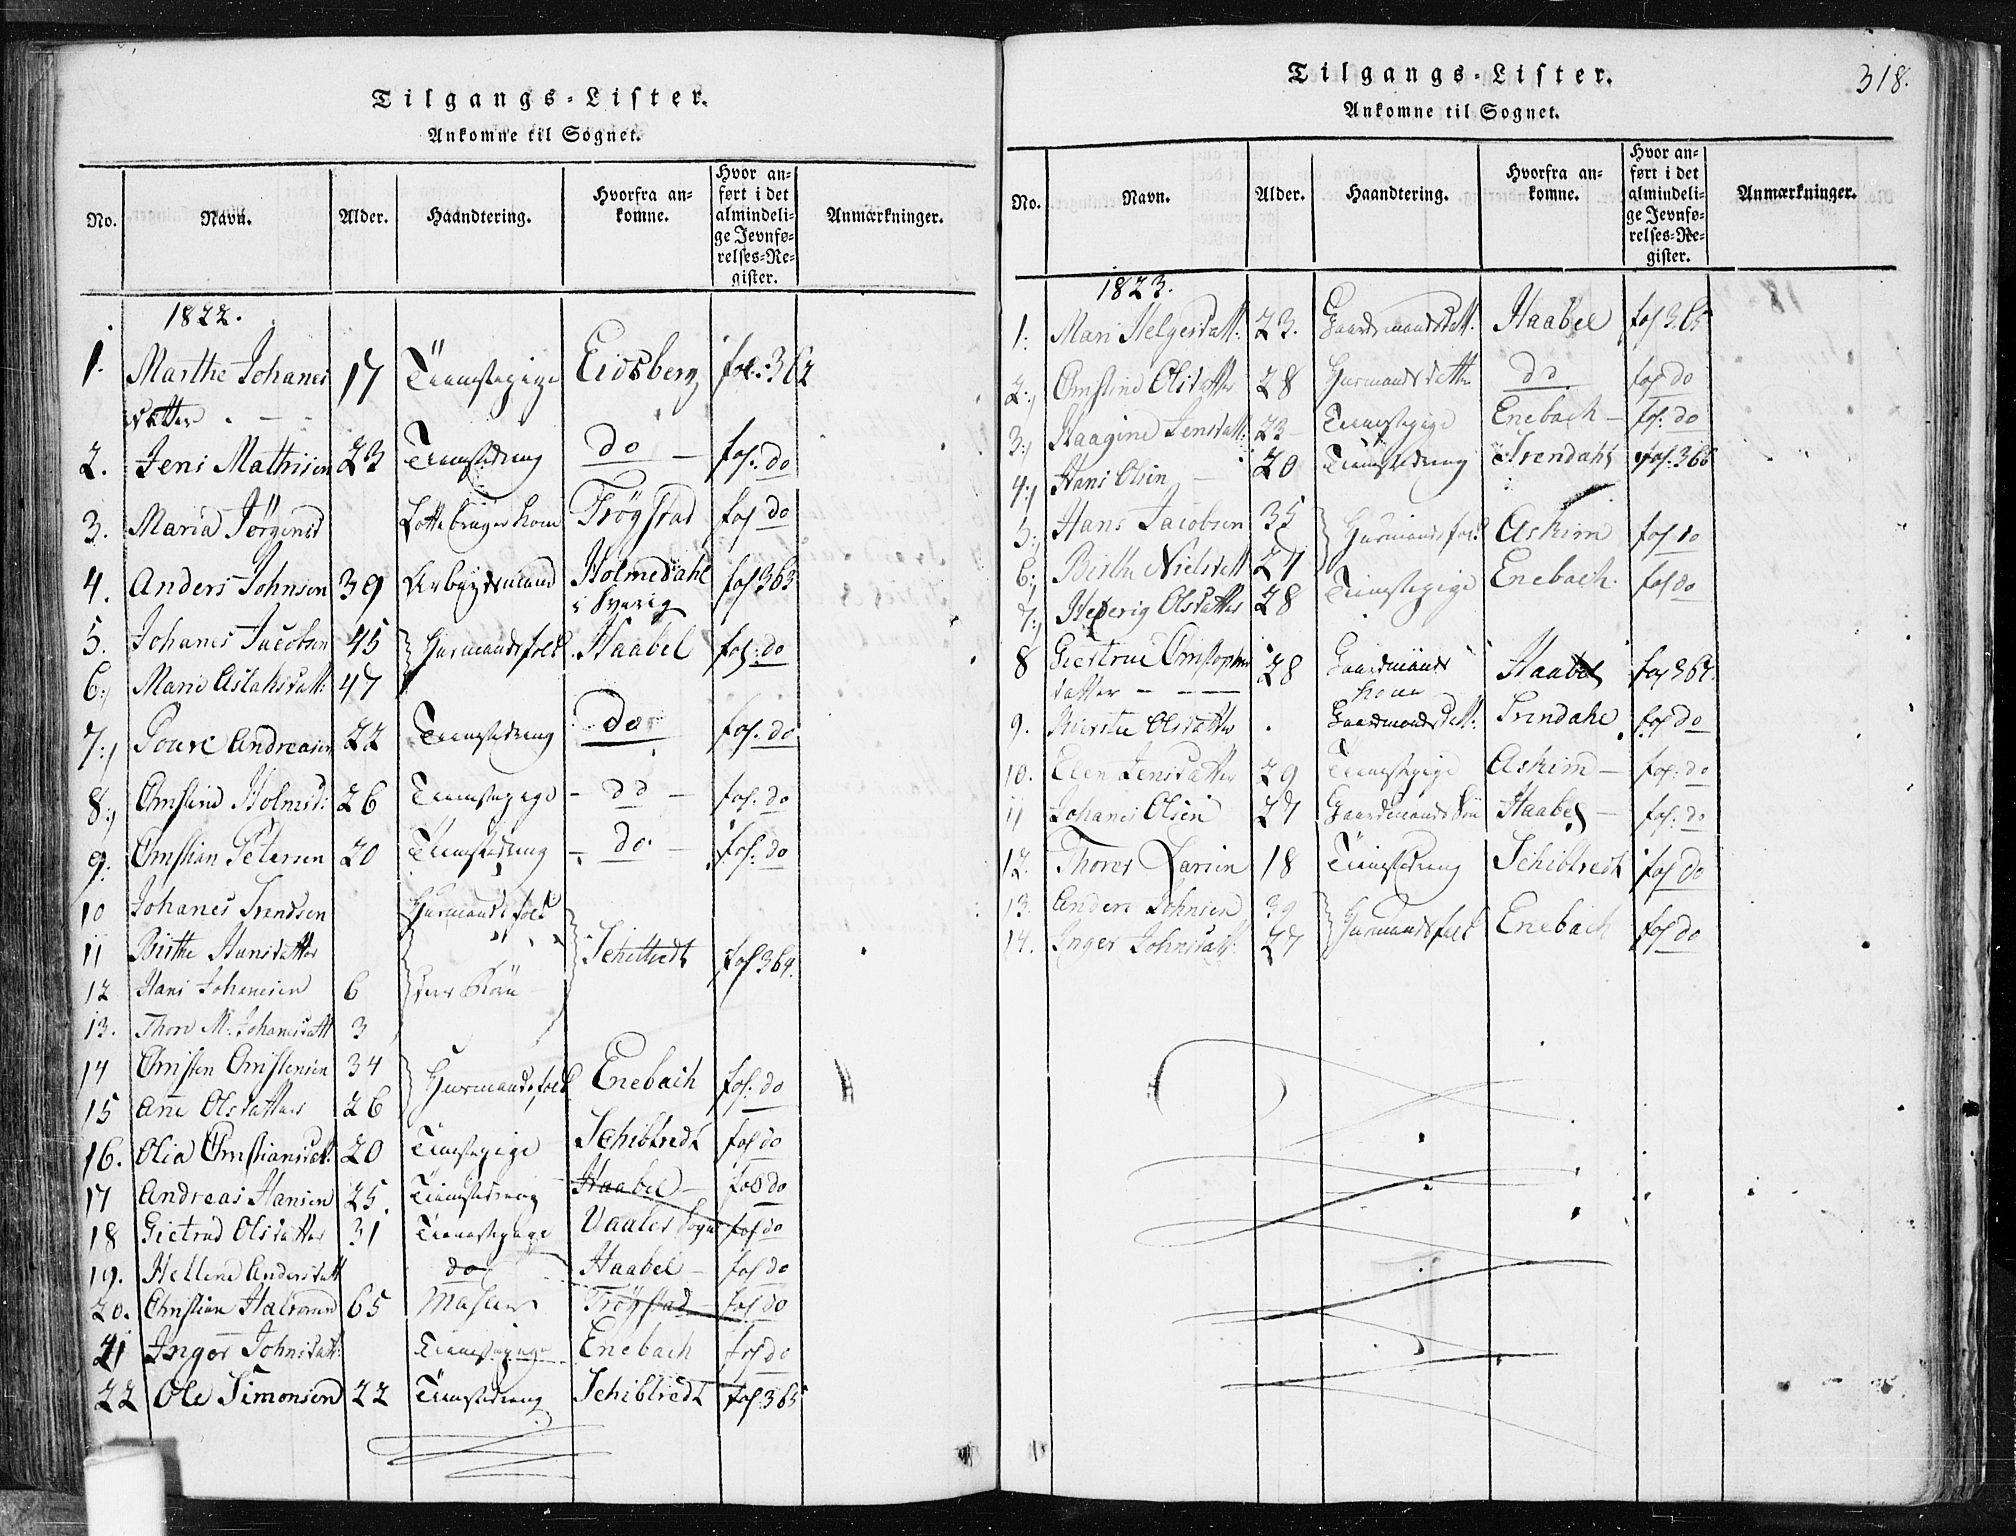 Tilgangs-Lister.
Ankomne til Sognet.
No. Navn. Alder. Haandtering. Hvorfra ankomne. Hvor anført i det almindelige Jevnførelses-Register. Anmærkninger.
1822.
1. Marthe Johanes datter 17 Tienestepige Eidsberg fol. 362
2. Jens Mathisen 23 Tienestedreng do fol. do
3. Maria Jørgensd Trøgstad fol do
4. Anders Johnsen 39 Holmedahl i Sverig fol 363
5. Johanes Jacobsen 45 Huusmandsfolk Haabel fol. do
6. Marie Aslaksdatt: 47
7. Povel Andreasen 22 Tienestedreng do fol. do
8. Christine Holmsd: 26 Tienestepige do fol. do
9. Christian Petersen 20 Tienestedreng do fol. do
10 Johanes Svendsen Huusmandsfolk
11 Birthe Hansdatter Schibtvedt fol 364.
12 Hans Johanesen 6 deres Børn
13. Thore M. Johanesdatt 3
14 Christen Christensen 34 Huusmandsfolk Enebach fol. do
15 Ane Olsdatter 26
16. Olia Christiansdat. 20 Tienestepige Schibtvedt fol do
17 Andreas Hansen 25. Tienestedreng Haabel fol do
18 Giertrud Olsdatter 31 Tienestepige Vaaler Sogn fol do
19. Hellene Andersdatt do Haabel fol do
20. Christian Halvorsen 65 Trøgstad fol do
21 Inger Johnsdatt: Tienestepige Enebach fol do
22 Ole Simonsen 22 Tienestedreng Schibtvedt fol. 365
318.
Tilgangs-Lister.
Ankomne til Sognet.
No. Navn. Alder. Haandtering. Hvorfra ankomne. Hvor anført i det almindelige Jevnførelses-Register. Anmærkninger.
1823.
1. Mari Helgesdatt: 23. Gaardmandsdatt. Haabel fol 365
2. Christine Olsdatter 28 Huusmandsdatter do fol do
3. Haagine Jensdatt: 23 Tienestepige Enebach fol. do
4. Hans Olsen 20 Tienestedreng fol. 366
5. Hans Jacobsen 35 Huusmandsfolk Askim fol do
6. Birthe Nielsdatt 27
7. Hedevig Olsdatter 28 Tienestepige Enebach. fol do
8 Giertrue Christophers datter 28 Gaardmands kone Haabel fol 367.
9. Kirstie Olsdatter Gaardmandsdatt: fol do
10. Elen Jensdatter 29 Tienestepige Askim fol. do
11 Johanes Olsen 27 Gaardmands Søn Haabel fol. do
12. Thorer Larsen 18 Tienestedreng Schibtvedt fol do
13. Anders Johnsen 39 Huusmandsfolk Enebach fol do
14. Inger Johnsdatt. 27